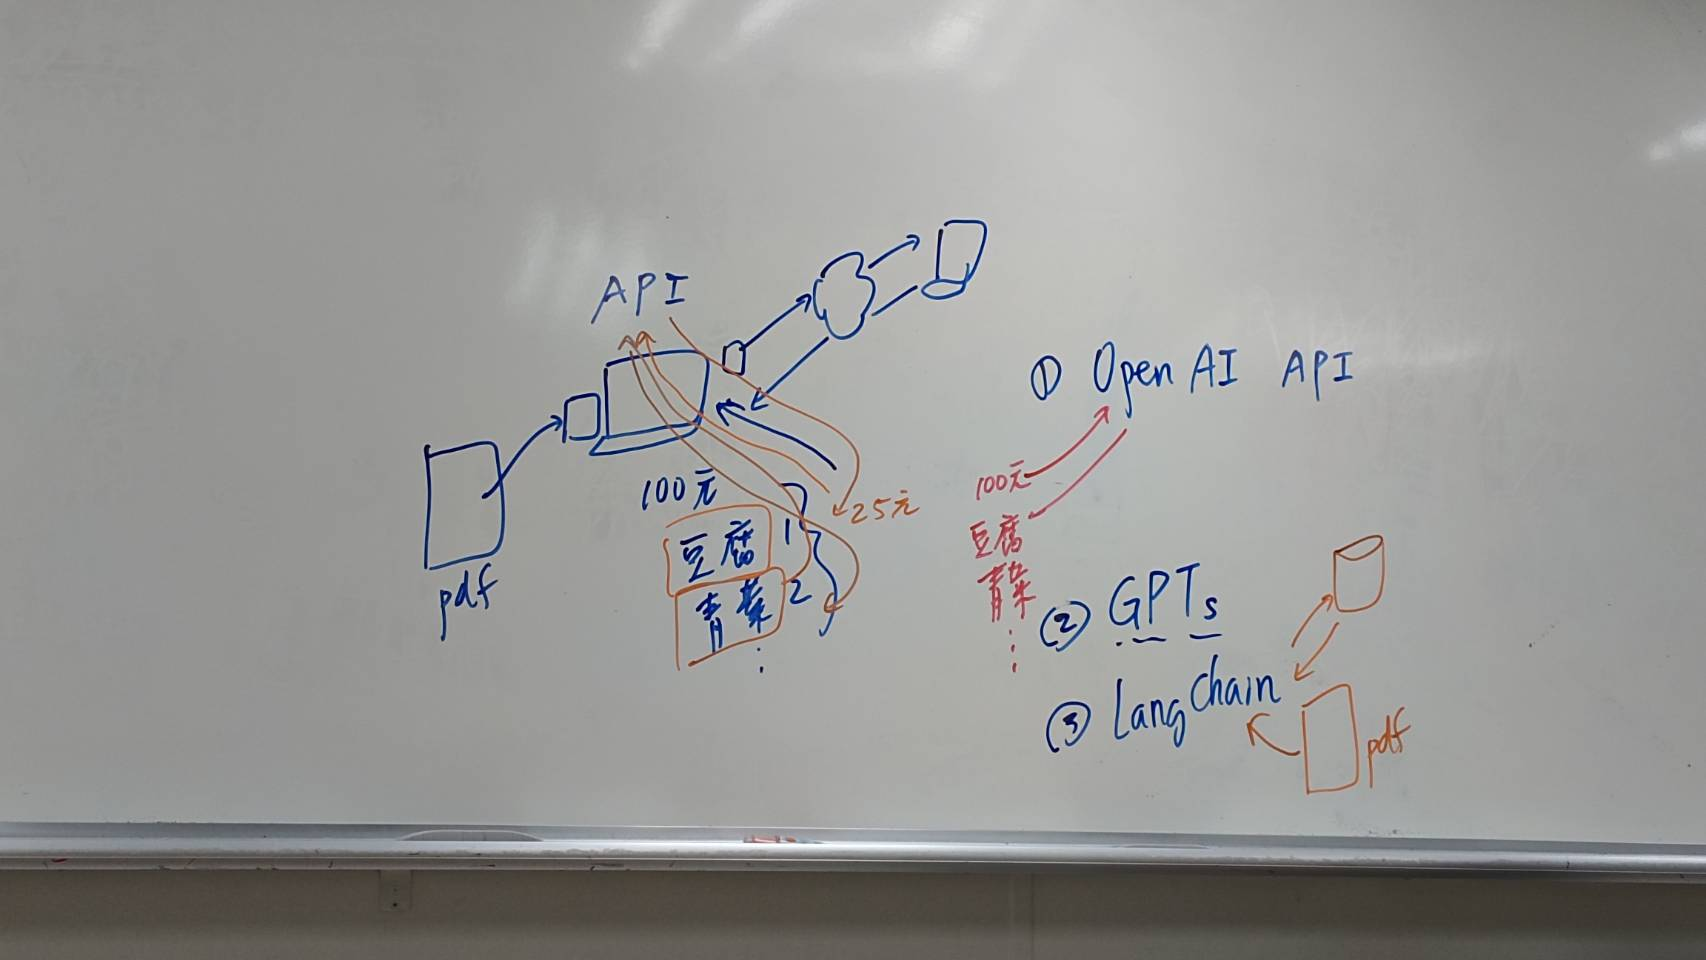 API
pdf
100元
豆腐 1
青菜 2
⋮
25元
① OpenAI API
100元
豆腐
青菜
⋮
② GPTs
③ LangChain
pdf